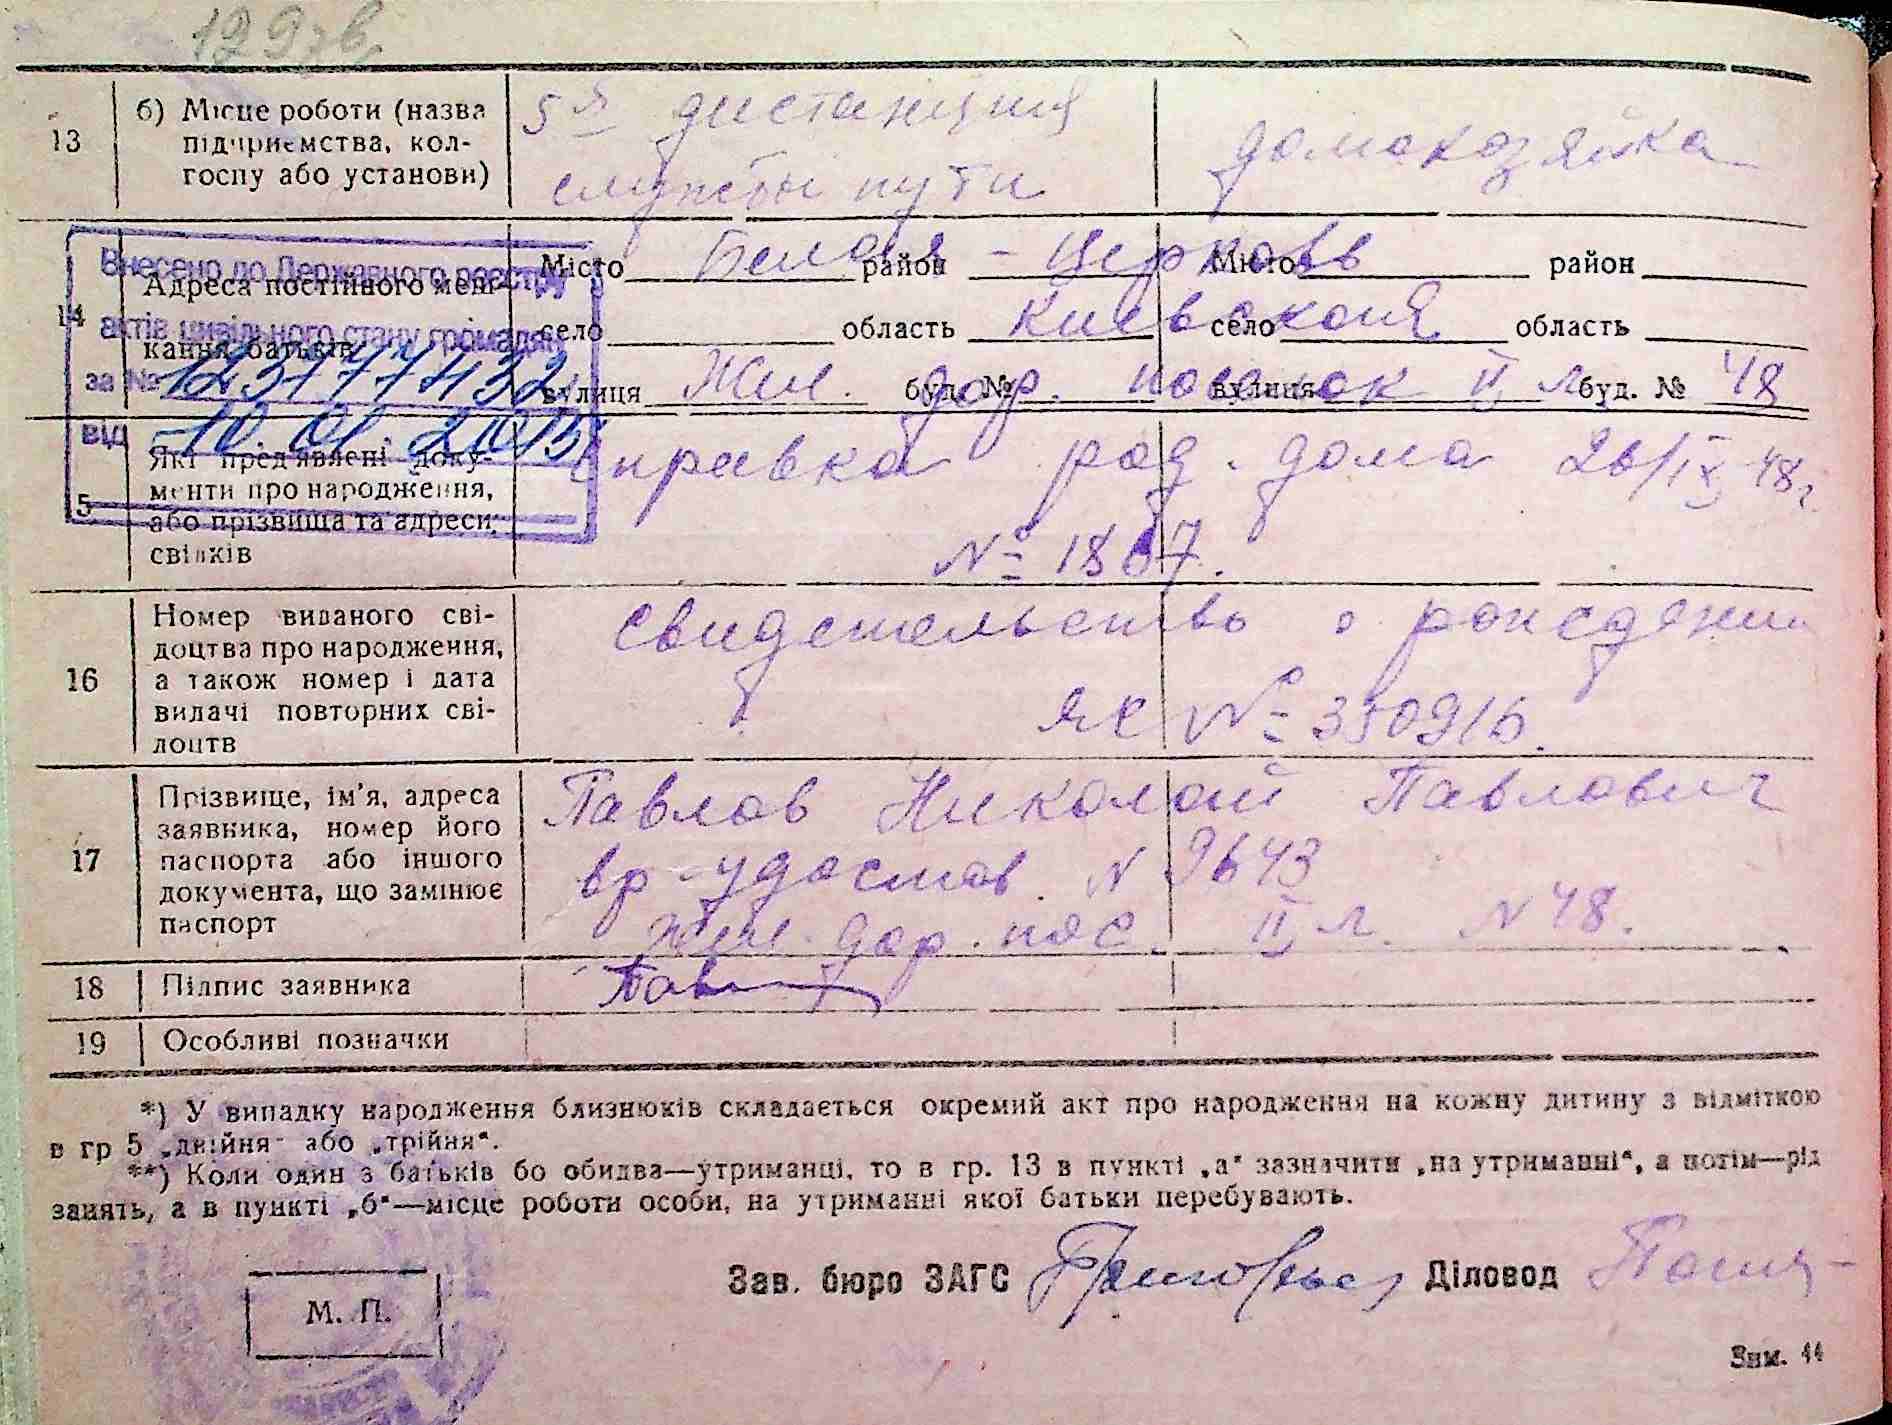 129 зв.
13
б) Місце роботи (назва
підприємства, кол-
госпу або установи)
5я дистанция
службы пути
домохозяйка
14
Адреса постійного меш-
кання батьків
Місто Белая - Церковь район Місто район
село область Киевская село область
вулиця Жел. дор. поселок II л буд. № вулиця буд. № 48
Внесено до Державного реєстру
актів цивільного стану громадян
за № 12377432
від 10 01 2013
5
Які пред'явлені доку-
менти про народження,
або прізвища та адреси
свідків
Справка род. дома 26/IX 48г.
№ 1867.
16
Номер виданого сві-
доцтва про народження,
а також номер і дата
видачі повторних сві-
доцтв
свидетельство о рождении
ЯЕ № 350916.
17
Прізвище, ім'я, адреса
заявника, номер його
паспорта або іншого
документа, що замінює
паспорт
Павлов Николай Павлович
вр-удостов. N 9643
Жел. дор. пос. II л. N 48.
18
Підпис заявника
Пав
19
Особливі позначки
*) У випадку народження близнюків складається окремий акт про народження на кожну дитину з відміткою
в гр 5 „двійня" або „трійня".
**) Коли один з батьків бо обидва—утриманці, то в гр. 13 в пункті „а" зазначити „на утриманні", а потім—рід
занять, а в пункті „б"—місце роботи особи, на утриманні якої батьки перебувають.
М. П.
Зав. бюро ЗАГС Діловод
Зам. 44